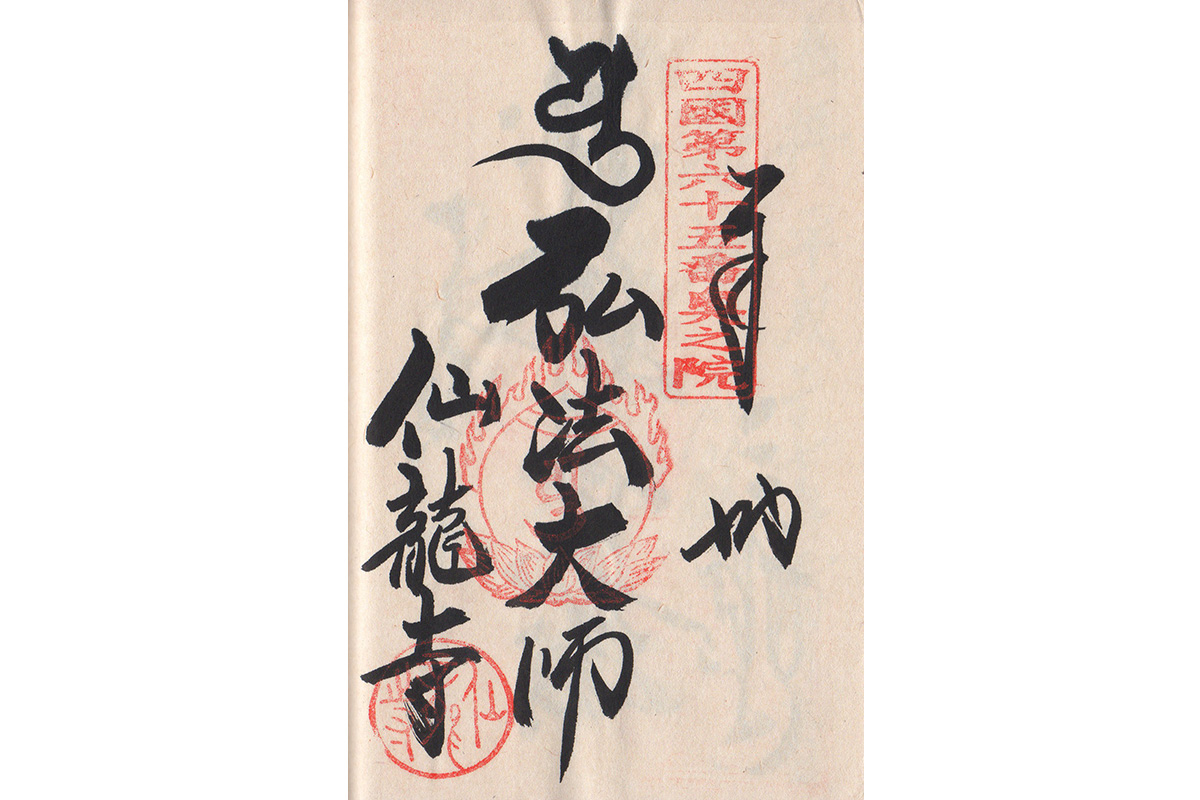 四國第六十五番奥之院
奉
弘法大師
仙龍寺